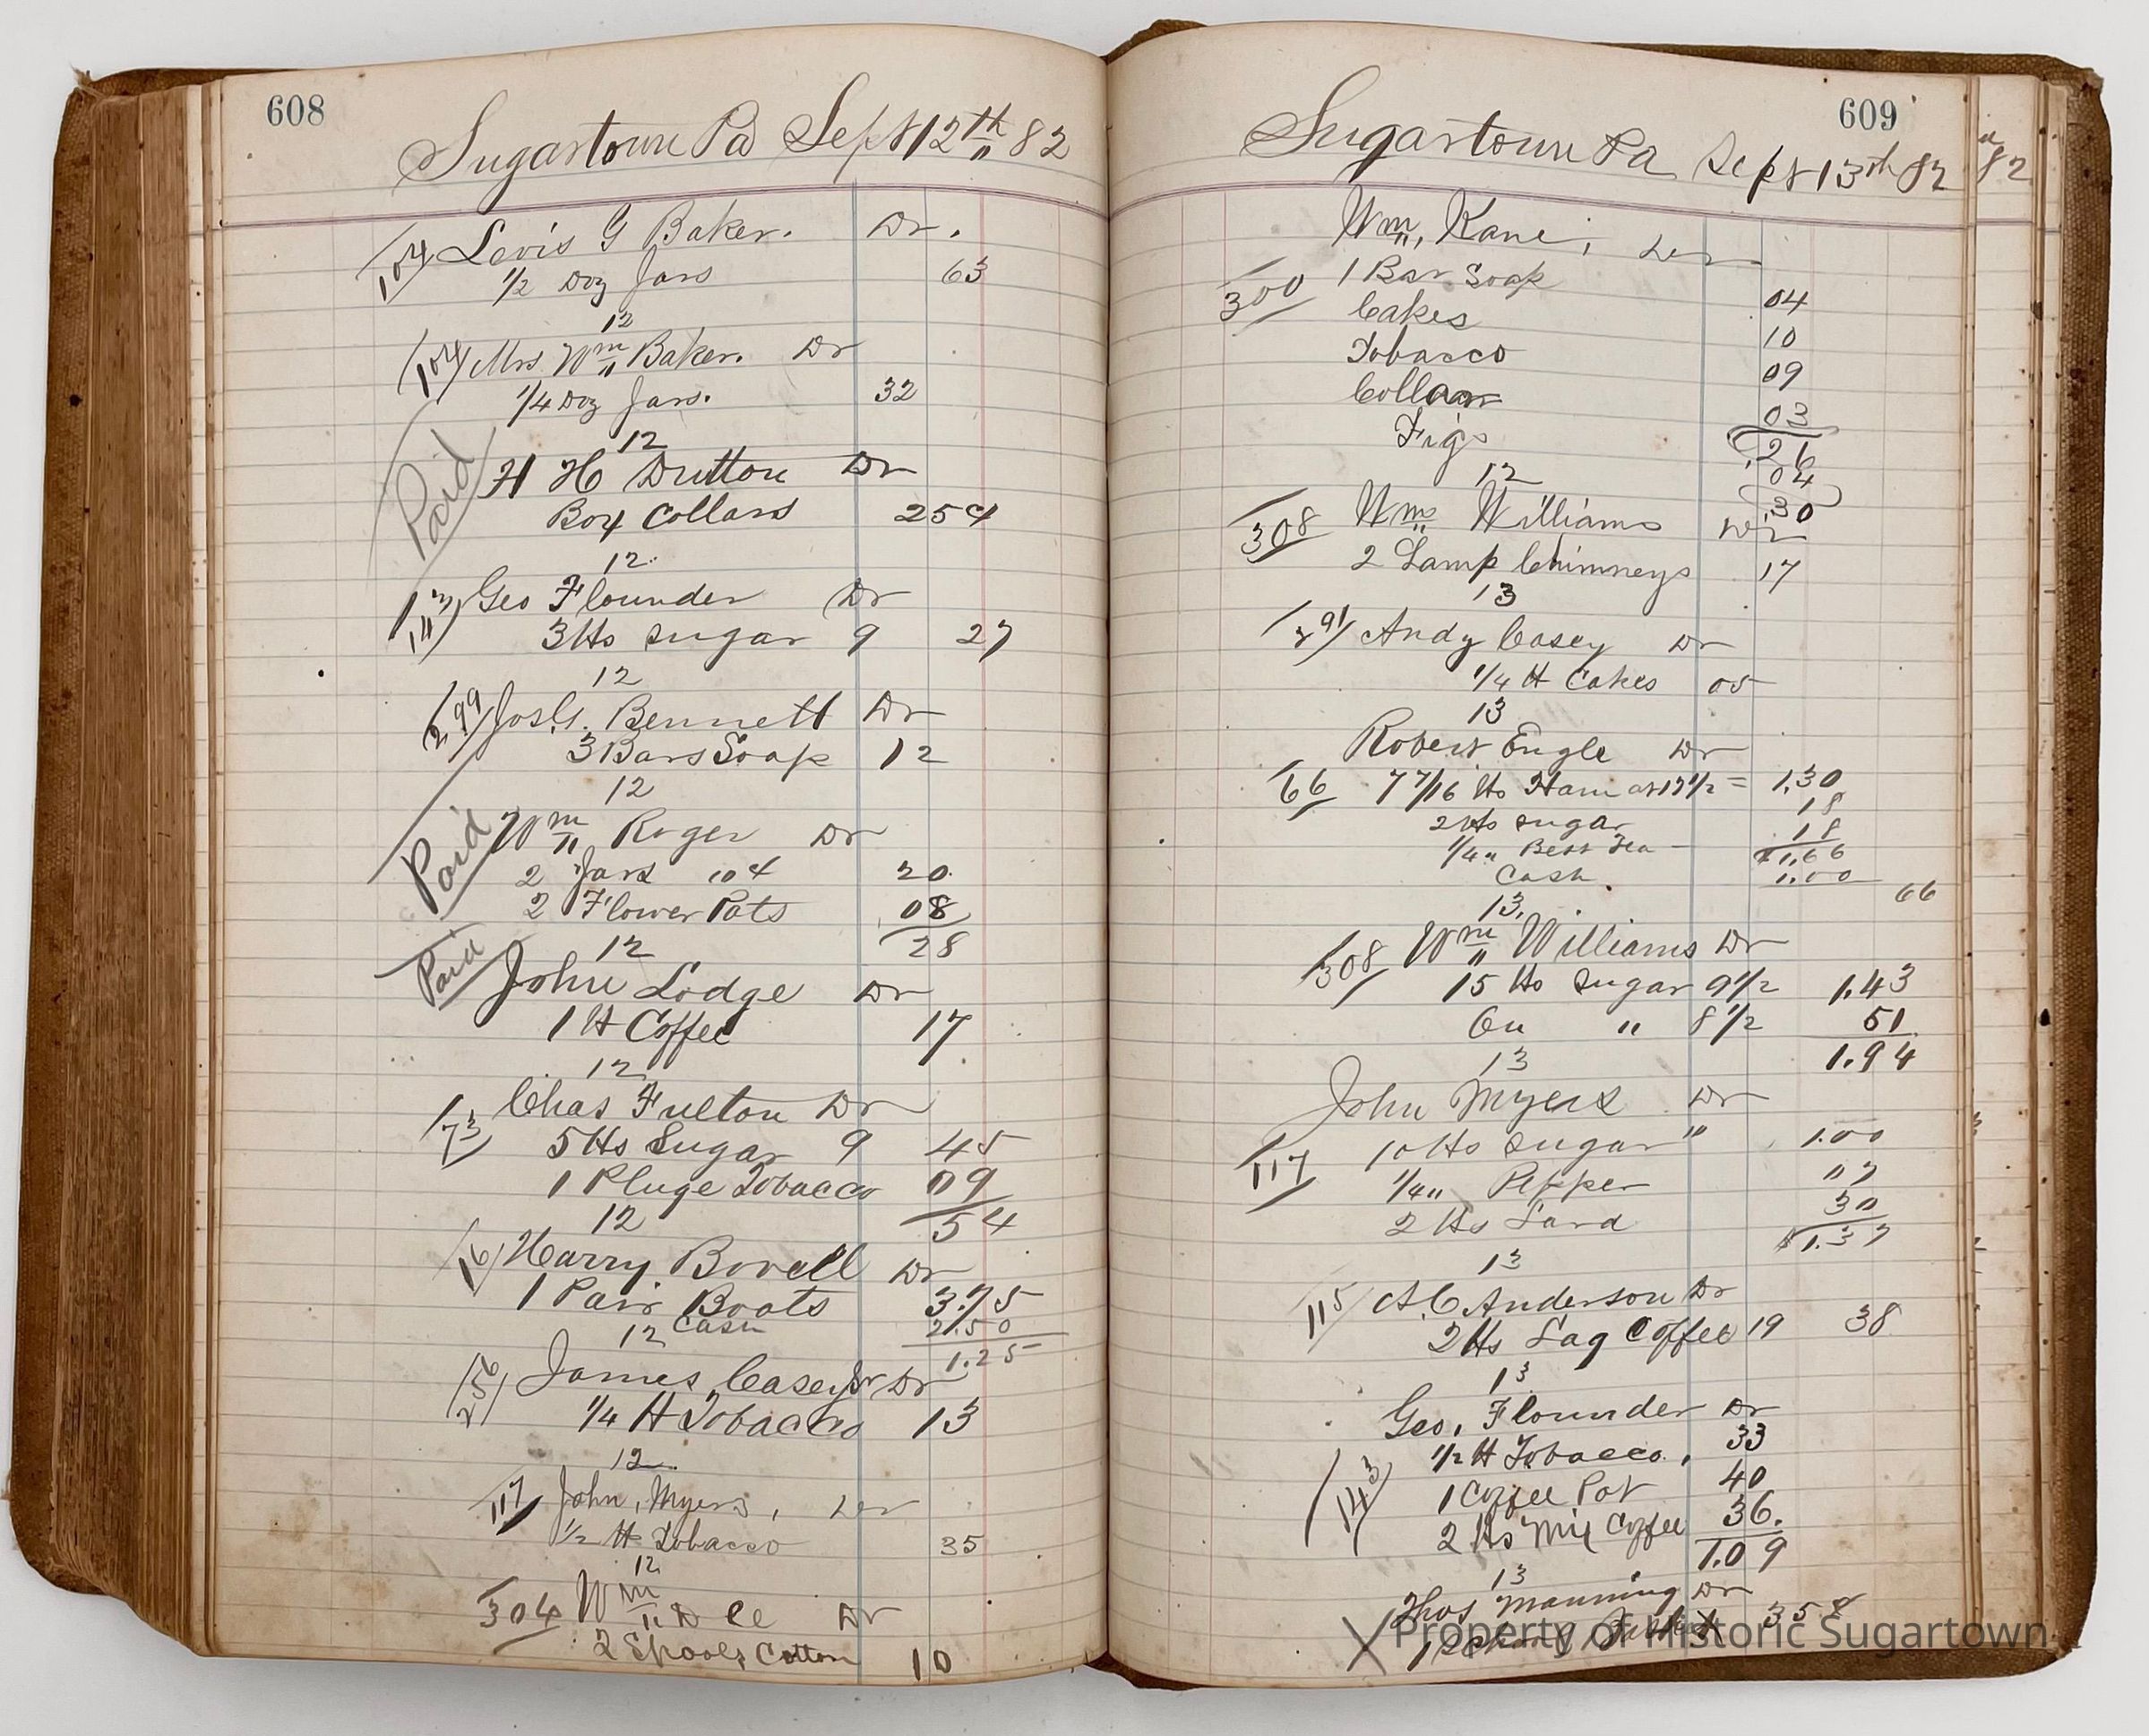 608
Sugartown Pa Sept 12th 82
104 Levis G Baker. Dr.
1/2 Doz Jars 63
12
104 Mrs Wm Baker. Dr
1/4 Doz Jars. 32
12
Paid H H Dutton Dr
Box Collars 25¢
12
143 Geo Flounder Dr
3 lbs sugar 9 27
12
299 Jos G. Bennett Dr
3 Bars Soap 12
12
Paid Wm Roger Dr
2 Jars 10¢ 20
2 Flower Pots 08
12 28
Paid John Lodge Dr
1 lb Coffee 17
12
173 Chas Fulton Dr
5 lbs Sugar 9 45
1 Pluge Tobacco 09
12 54
16 Harry Bovell Dr
1 Pair Boots 3.75
12 Cash 2.50
1.25
256 James Casey Jr Dr
1/4 lb Tobacco 13
12
117 John, Myers, Dr
1/2 lb Tobacco 35
12
304 Wm Dr
2 Spools Cotton 10
609
Sugartown Pa Sept 13th 82
82
Wm, Kane, Dr
300 1 Bar Soap 04
Cakes 10
Tobacco 09
Collar 03
Figs 26
12 04
30
308 Wm Williams Dr
2 Lamp Chimneys 17
13
291 Andy Casey Dr
1/4 lb Cakes 05
13
Robert Engle Dr
66 7 7/16 lbs Ham at 17 1/2 = 1.30
2 lbs sugar 18
1/4 " Best Tea 18
$1.66
Cash 1.00
66
13.
308 Wm Williams Dr
15 lbs Sugar 9 1/2 1.43
On " 8 1/2 51
13 1.94
John Myers Dr
117 10 lbs sugar " 1.00
1/4 " Pepper 07
2 lbs Lard 30
$1.37
13
115 A.C. Anderson Dr
2 lbs Lag Coffee 19 38
13
Geo, Flounder Dr
143 1/2 lb Tobacco, 33
1 Coffee Pot 40
2 lbs Mix Coffee 36.
1.09
13
Thos Manning Dr
X 1 35¢
Property of Historic Sugartown